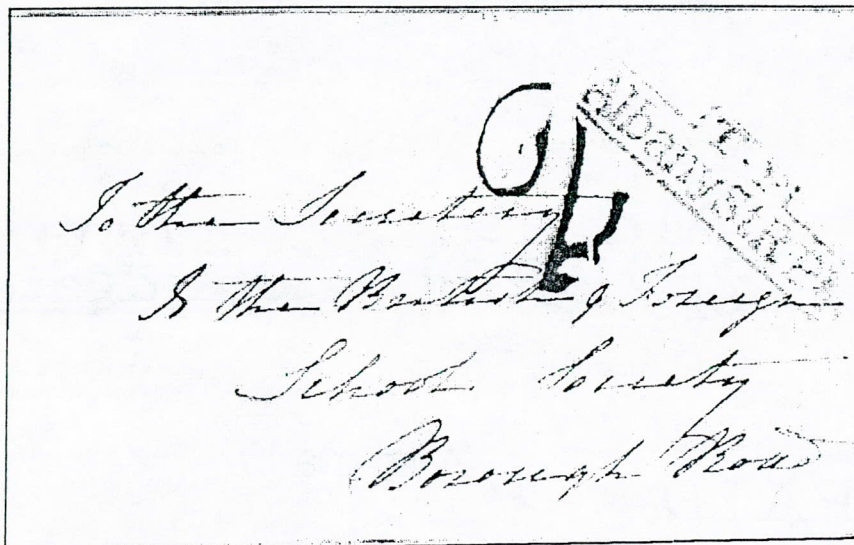 T.P
Albany St
To the Secretary
To the British & Foreign
School Society
Borough Road